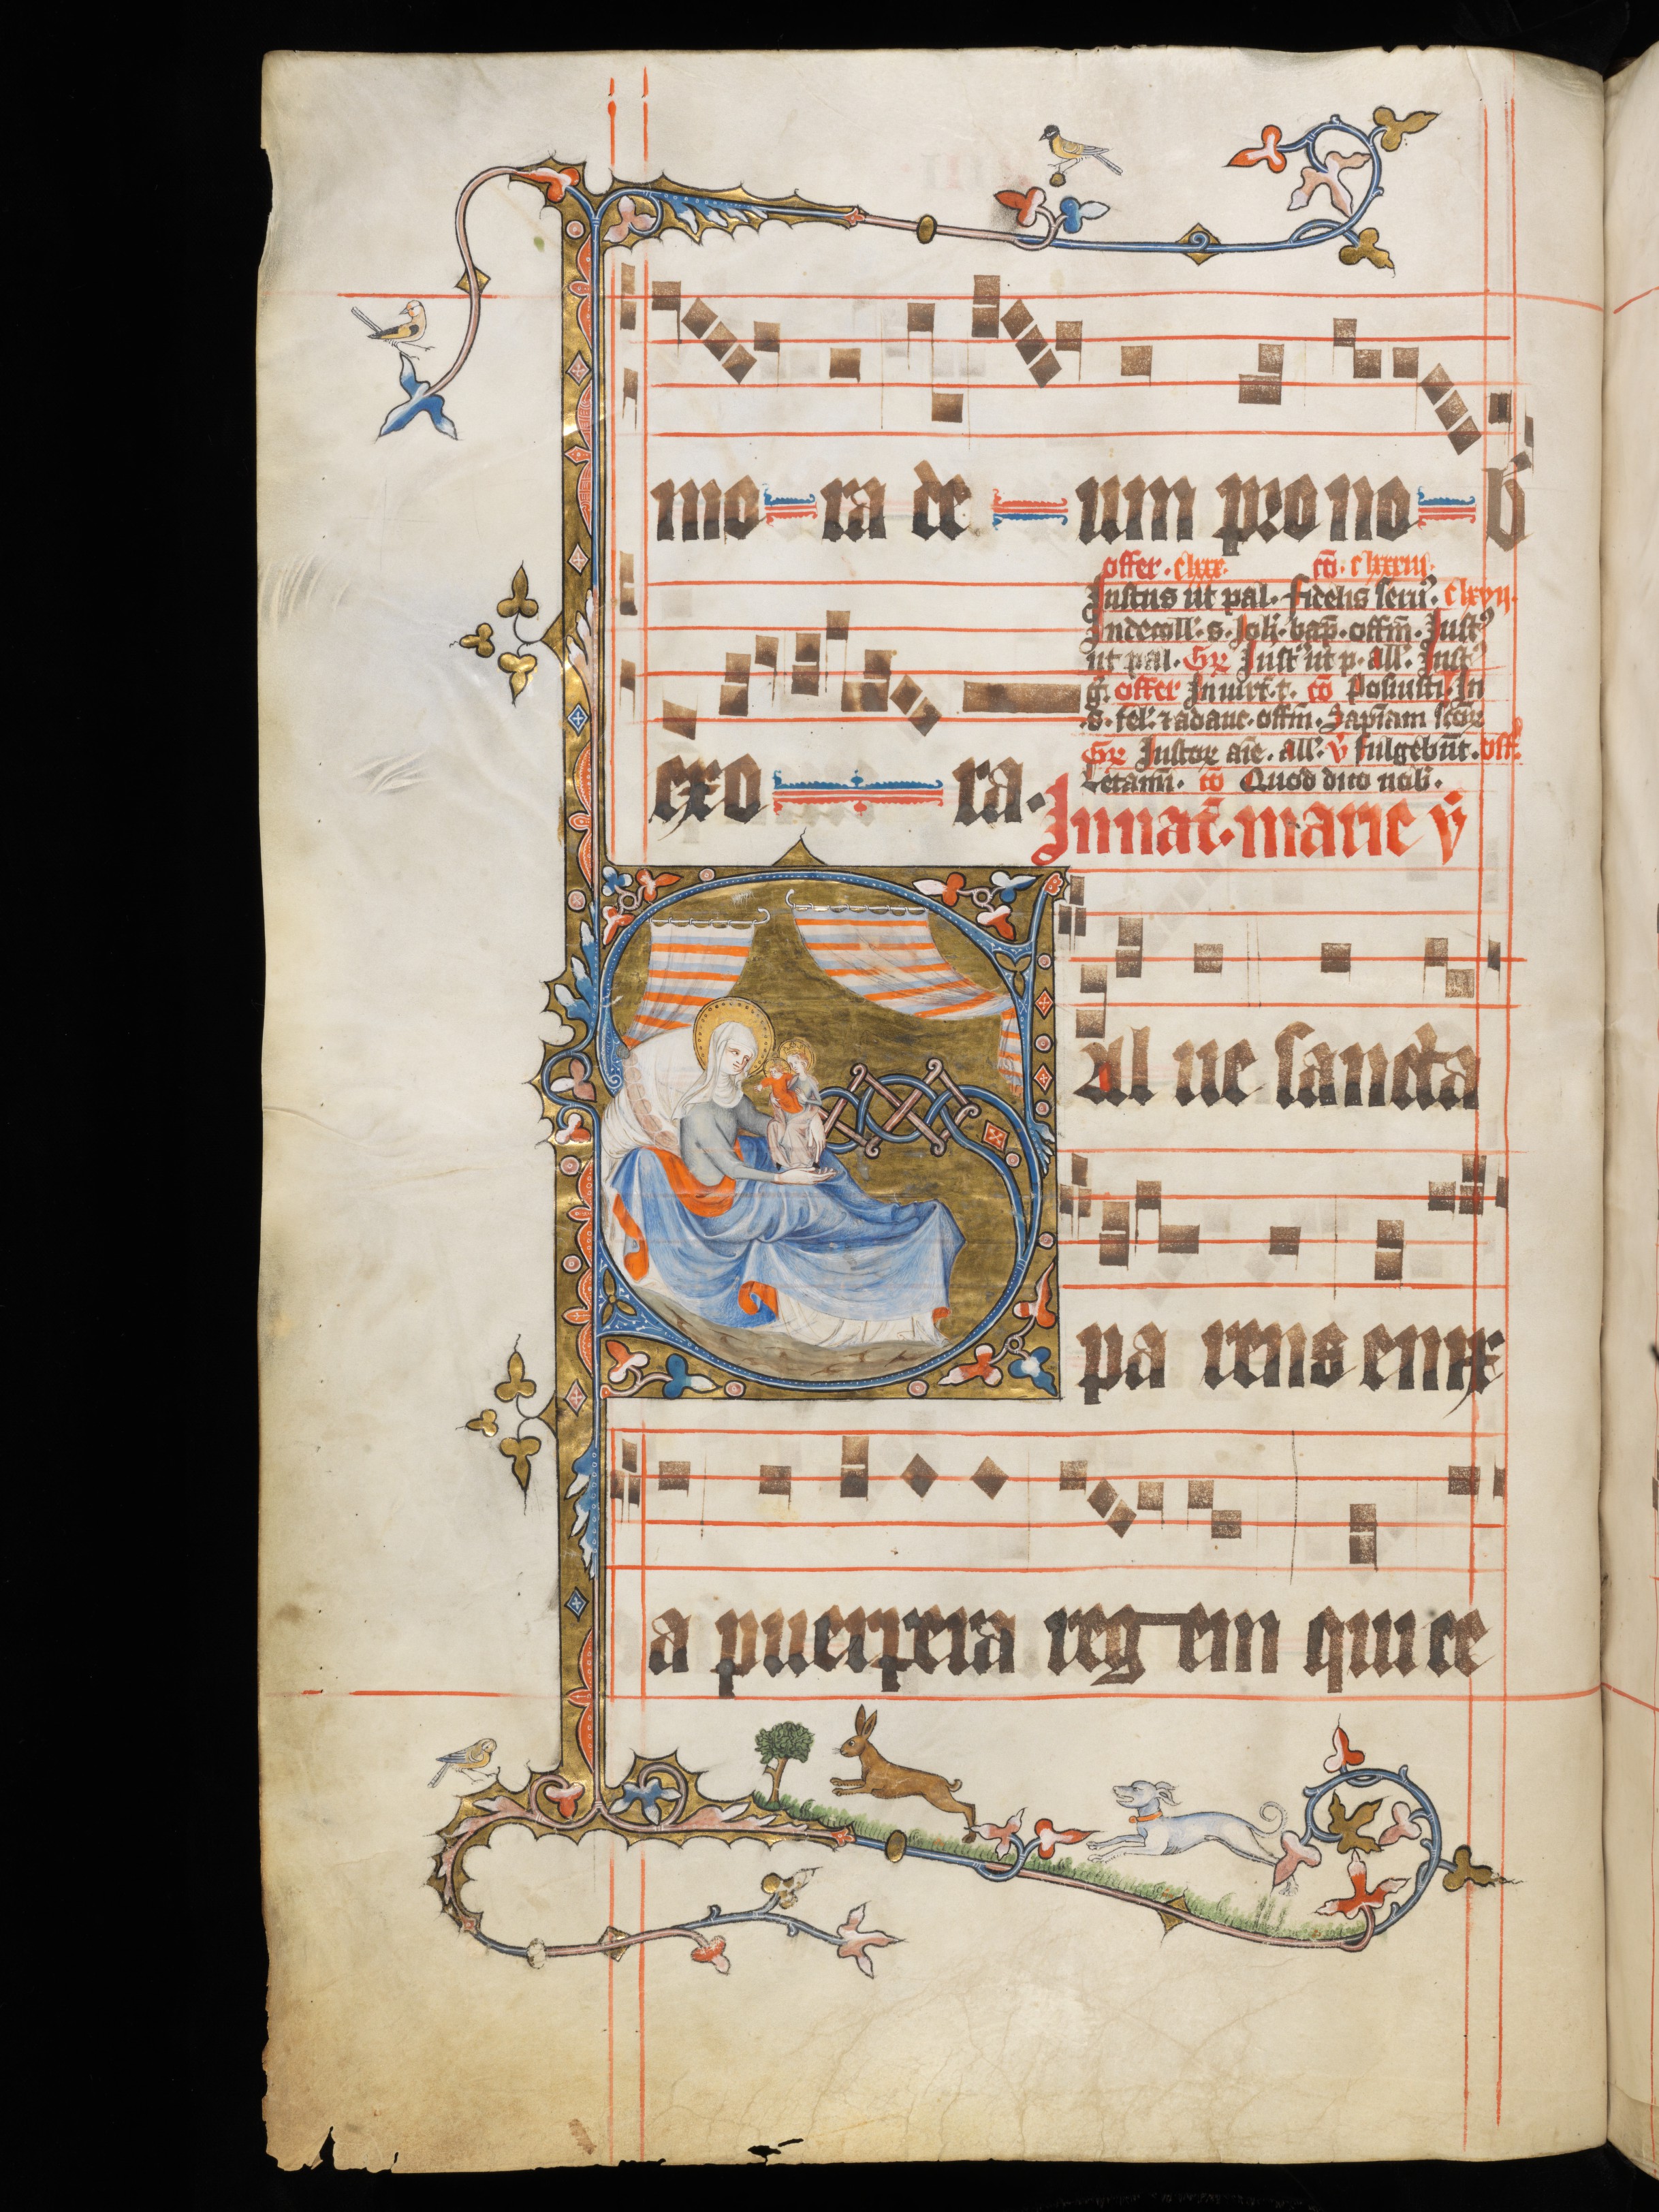 mo ra de um pro no b̄
offer. clxxx. cō. clxxxiii.
Justus ut pal. fidelis seru᷒. clxvii.
In decoll'. s. Joh. bap̄. offm̄. Just᷒
ut pal. Gr̄ Just᷒ ut p. all'. Just᷒
ḡ. offer In uirt. t. cō Posuisti. In
s. fel'. ⁊ adauc. offm̄. Sapīam sctōꝝ
Gr̄ Justoꝝ aīe. all'. v̄ fulgebūt. off.
Letam̄. cō Quod dico uob̄.
exo ra.
In nat̄. marie v̄
Sal ue sancta
pa rens enix
a puerpera reg em qui ce